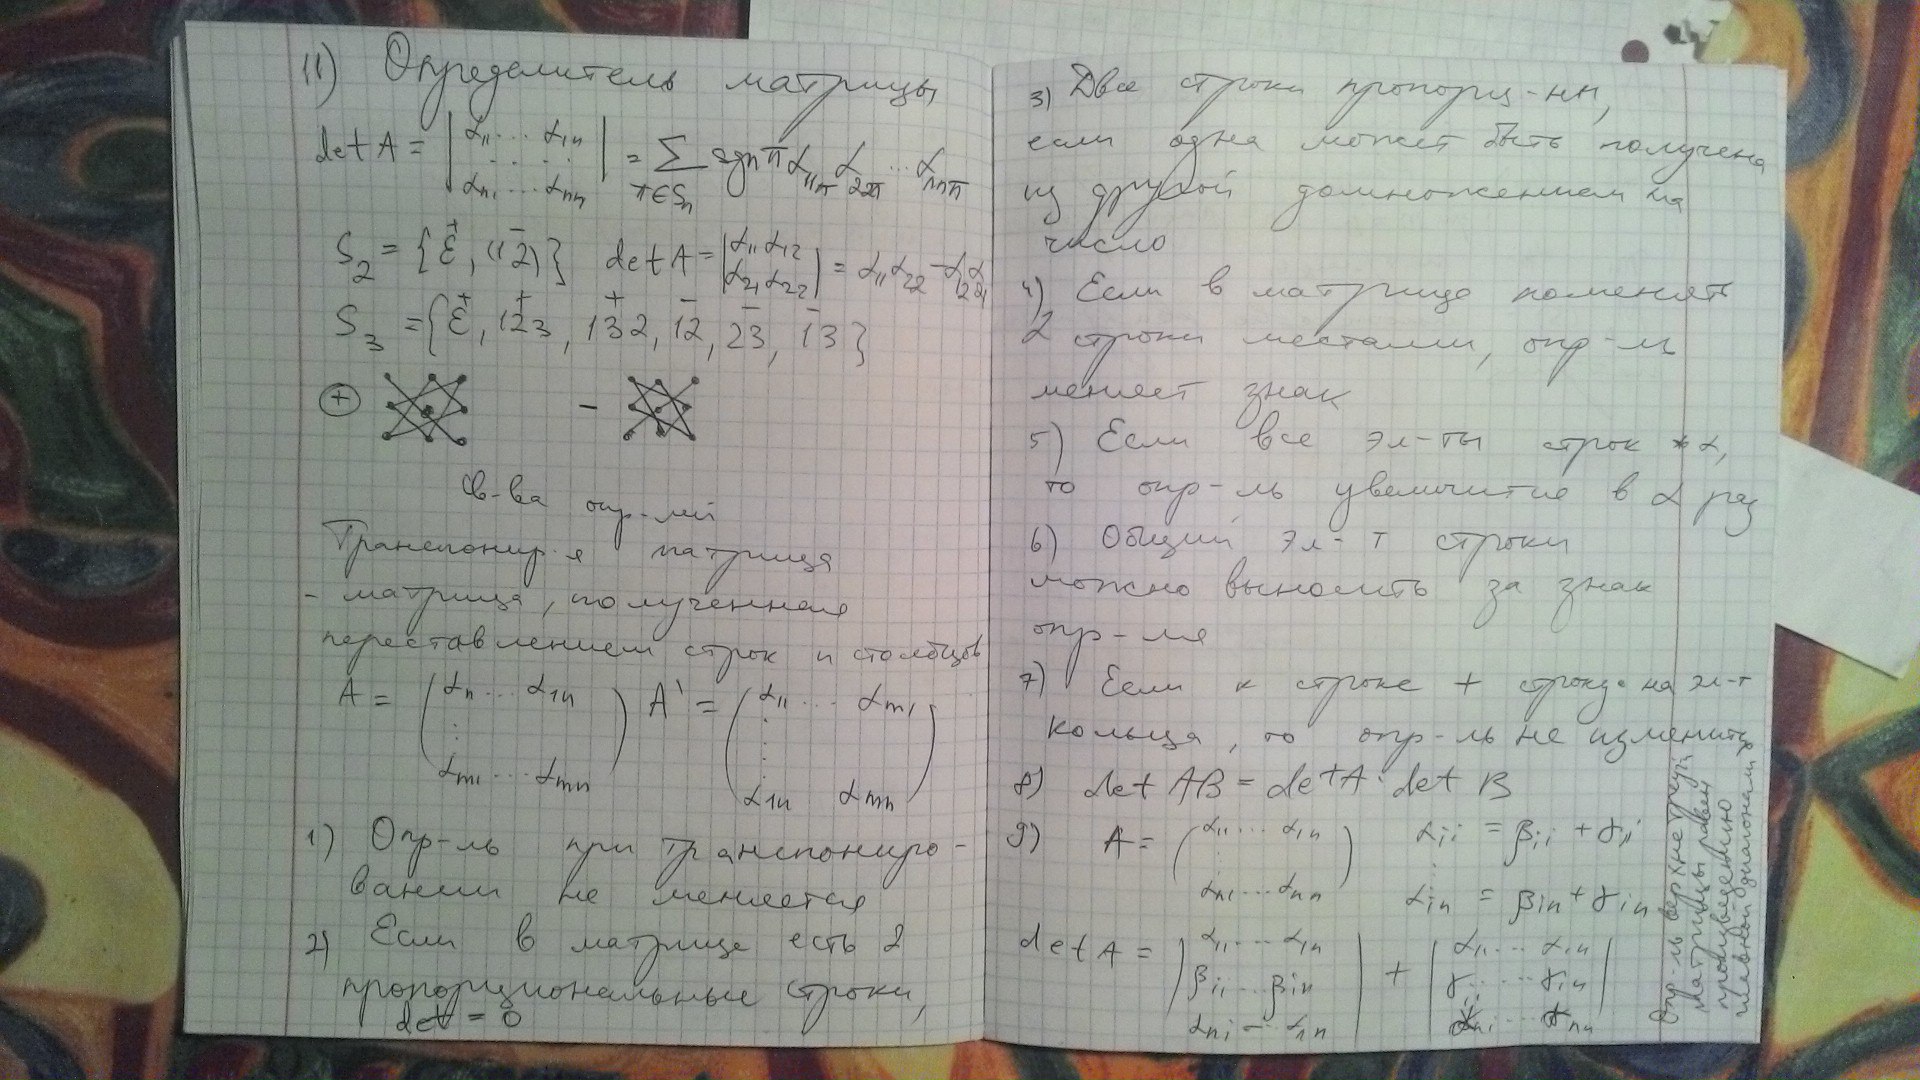 11) Определитель матрицы
det A = | α₁₁ ... α₁ₙ |
| . . . . . |
| αₙ₁ ... αₙₙ | = ∑ π∈Sₙ sgn π α₁₁π α₂₂π ... αₙₙπ
S₂ = {ε⁺, (12)⁻} det A = | α₁₁ α₁₂ |
| α₂₁ α₂₂ | = α₁₁ α₂₂ - α₁₂ α₂₁
S₃ = {ε⁺, 123⁺, 132⁺, 12⁻, 23⁻, 13⁻}
+ -
св-ва опр-лей
Транспонир-я матрица
- матрица, полученная
переставлением строк и столбцов
A = ( α₁₁ ... α₁ₙ ) A' = ( α₁₁ ... αₘ₁ )
αₘ₁ ... αₘₙ
α₁ₙ αₘₙ
1) Опр-ль при транспониро-
вании не меняется
2) Если в матрице есть 2
пропорциональные строки,
det = 0
3) Две строки пропорц-ны,
если одна может быть получена
из другой домножением на
число
4) Если в матрице поменять
2 строки местами, опр-ль
меняет знак
5) Если все эл-ты строк * α,
то опр-ль увеличится в α раз
6) Общий эл-т строки
можно выносить за знак
опр-ля
7) Если к строке + строку · на эл-т
кольца, то опр-ль не изменится
8) det AB = det A · det B
9) A = ( α₁₁ ... α₁ₙ ) αᵢᵢ = βᵢᵢ + γᵢᵢ
αₙ₁ ... αₙₙ αᵢₙ = βᵢₙ + γᵢₙ
det A = | α₁₁ ... α₁ₙ | + | α₁₁ ... α₁ₙ |
βᵢᵢ ... βᵢₙ γᵢᵢ ... γᵢₙ
αₙ₁ ... αₙₙ αₙ₁ ... αₙₙ
Опр-ль верхнетреуг.
матрицы равен
произведению
главной диагонали